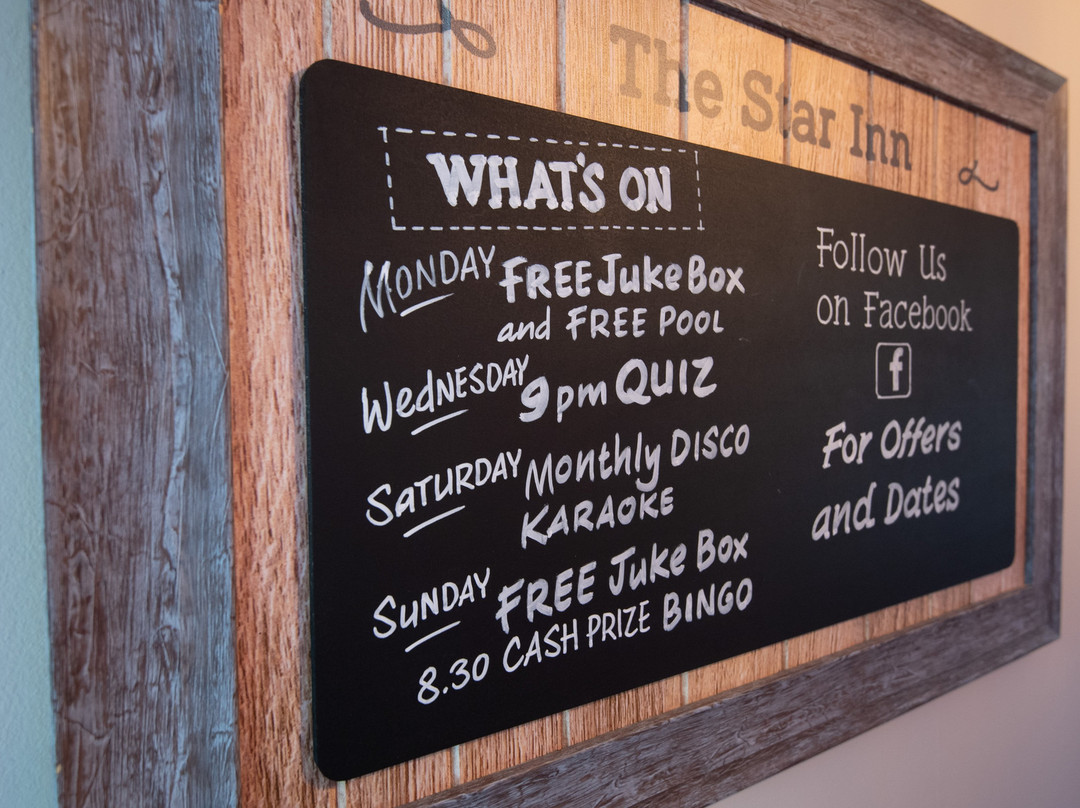 The Star Inn
WHAT'S ON
MONDAY FREE JukeBox
and FREE POOL
WedNESDAY 9pm QUIZ
SATURDAY Monthly DISCO
KARAOKE
SUNDAY FREE Juke Box
8.30 CASH PRIZE BINGO
Follow Us
on Facebook
f
For Offers
and Dates